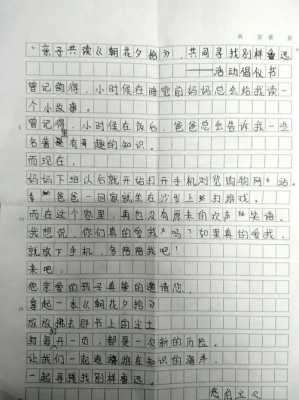 "亲子共读《朝花夕拾》，共同寻找别样鲁迅
——活动倡议书
曾记的得，小时候在睡觉前妈妈总会给我读一
个小故事。
曾记得，小时候在饭后，爸爸总会告诉我一些
名著里有趣的知识。
而现在，
妈妈下班以后就开始打开手机浏览购物网站
爸爸一回家就坐在沙发上打游戏。
而在这个家里，再也没有原来的欢声笑语。
我想说，你们真的爱我吗？如果真的爱我，
就放下手机，多陪陪我吧！
来吧，
您亲爱的孩子真挚的邀请您，
拿起一本《朝花夕拾》
拂去那书上的尘土
每每开一页，都是一次新的历险。
让我们一起遨游在知识的海洋
一起寻找别样鲁迅。